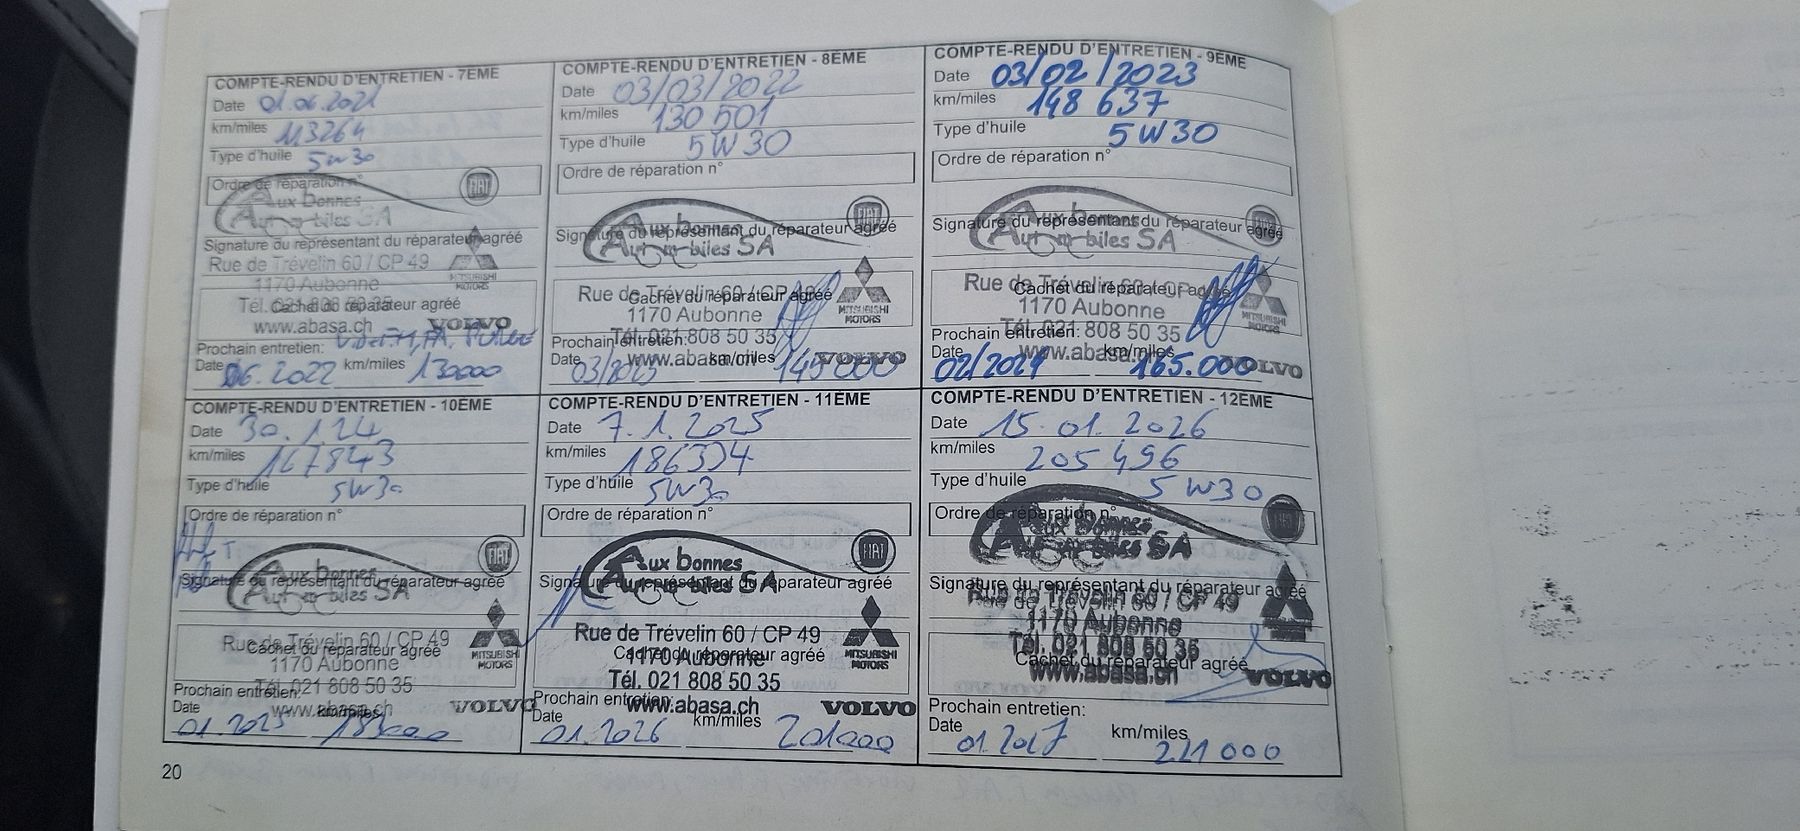 COMPTE-RENDU D'ENTRETIEN - 7ÈME
Date 01.06.2021
km/miles 113264
Type d'huile 5W30
Ordre de réparation n°
FIAT
Aux Bonnes
Automobiles SA
Signature du représentant du réparateur agréé
Rue de Trévelin 60 / CP 49
1170 Aubonne
MITSUBISHI
MOTORS
Tél. 021 808 50 35
Cachet du réparateur agréé
www.abasa.ch
VOLVO
Prochain entretien:
Date 06.2022 km/miles 130000
COMPTE-RENDU D'ENTRETIEN - 8ÈME
Date 03/03/2022
km/miles 130 501
Type d'huile 5W30
Ordre de réparation n°
FIAT
Aux Bonnes
Automobiles SA
Signature du représentant du réparateur agréé
Rue de Trévelin 60 / CP 49
Cachet du réparateur agréé
1170 Aubonne
MITSUBISHI
MOTORS
Tél. 021 808 50 35
Prochain entretien:
www.abasa.ch
VOLVO
Date 03/2023 km/miles 145000
COMPTE-RENDU D'ENTRETIEN - 9ÈME
Date 03/02/2023
km/miles 148 637
Type d'huile 5W30
Ordre de réparation n°
FIAT
Aux Bonnes
Automobiles SA
Signature du représentant du réparateur agréé
Rue de Trévelin 60 / CP
Cachet du réparateur agréé
1170 Aubonne
MITSUBISHI
MOTORS
Tél. 021 808 50 35
Prochain entretien:
www.abasa.ch
VOLVO
Date 02/2024 km/miles 165.000
COMPTE-RENDU D'ENTRETIEN - 10ÈME
Date 30.1.24
km/miles 167843
Type d'huile 5W30
Ordre de réparation n°
FIAT
Aux Bonnes
Automobiles SA
Signature du représentant du réparateur agréé
Rue de Trévelin 60 / CP 49
Cachet du réparateur agréé
1170 Aubonne
MITSUBISHI
MOTORS
Tél. 021 808 50 35
Prochain entretien:
www.abasa.ch
VOLVO
Date 01.2025 km/miles
COMPTE-RENDU D'ENTRETIEN - 11ÈME
Date 7.1.2025
km/miles 186334
Type d'huile 5W30
Ordre de réparation n°
FIAT
Aux Bonnes
Automobiles SA
Signature du représentant du réparateur agréé
Rue de Trévelin 60 / CP 49
1170 Aubonne
Cachet du réparateur agréé
MITSUBISHI
MOTORS
Tél. 021 808 50 35
Prochain entretien:
www.abasa.ch
VOLVO
Date 01.2026 km/miles 201000
COMPTE-RENDU D'ENTRETIEN - 12ÈME
Date 15.01.2026
km/miles 205 496
Type d'huile 5W30
Ordre de réparation n°
FIAT
Aux Bonnes
Automobiles SA
Signature du représentant du réparateur agréé
Rue de Trévelin 60 / CP 49
1170 Aubonne
Tél. 021 808 50 35
Cachet du réparateur agréé
www.abasa.ch
VOLVO
Prochain entretien:
Date 01.2027 km/miles 221 000
20